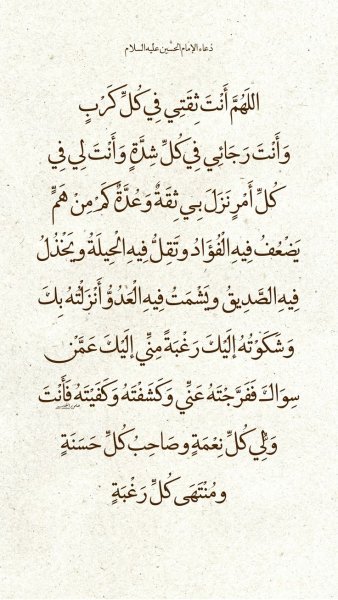 دعاء الإمام الحسين عليه السلام
اللهُمَّ أَنْتَ ثِقَتِي فِي كُلِّ كَرْبٍ
وَأَنْتَ رَجَائِي فِي كُلِّ شِدَّةٍ وَأَنْتَ لِي فِي
كُلِّ أَمْرٍ نَزَلَ بِي ثِقَةٌ وَعُدَّةٌ كَمْ مِنْ هَمٍّ
يَضْعُفُ فِيهِ الْفُؤَادُ وَتَقِلُّ فِيهِ الْحِيلَةُ وَيَخْذُلُ
فِيهِ الصَّدِيقُ وَيَشْمَتُ فِيهِ الْعَدُوُّ أَنْزَلْتُهُ بِكَ
وَشَكَوْتُهُ إِلَيْكَ رَغْبَةً مِنِّي إِلَيْكَ عَمَّنْ
سِوَاكَ فَفَرَّجْتَهُ عَنِّي وَكَشَفْتَهُ وَكَفَيْتَهُ فَأَنْتَ
وَلِيُّ كُلِّ نِعْمَةٍ وَصَاحِبُ كُلِّ حَسَنَةٍ
وَمُنْتَهَى كُلِّ رَغْبَةٍ